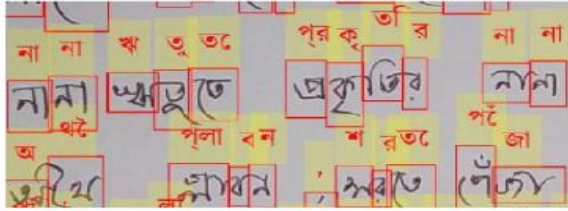 না না ঋ তু তে প্র কৃ তি র না না
নানা ঋতুতে প্রকৃতির নানা
থৈ অ প্লা ব ন শ র তে পেঁ জা
প্লাবন ; শরতে পেঁজা